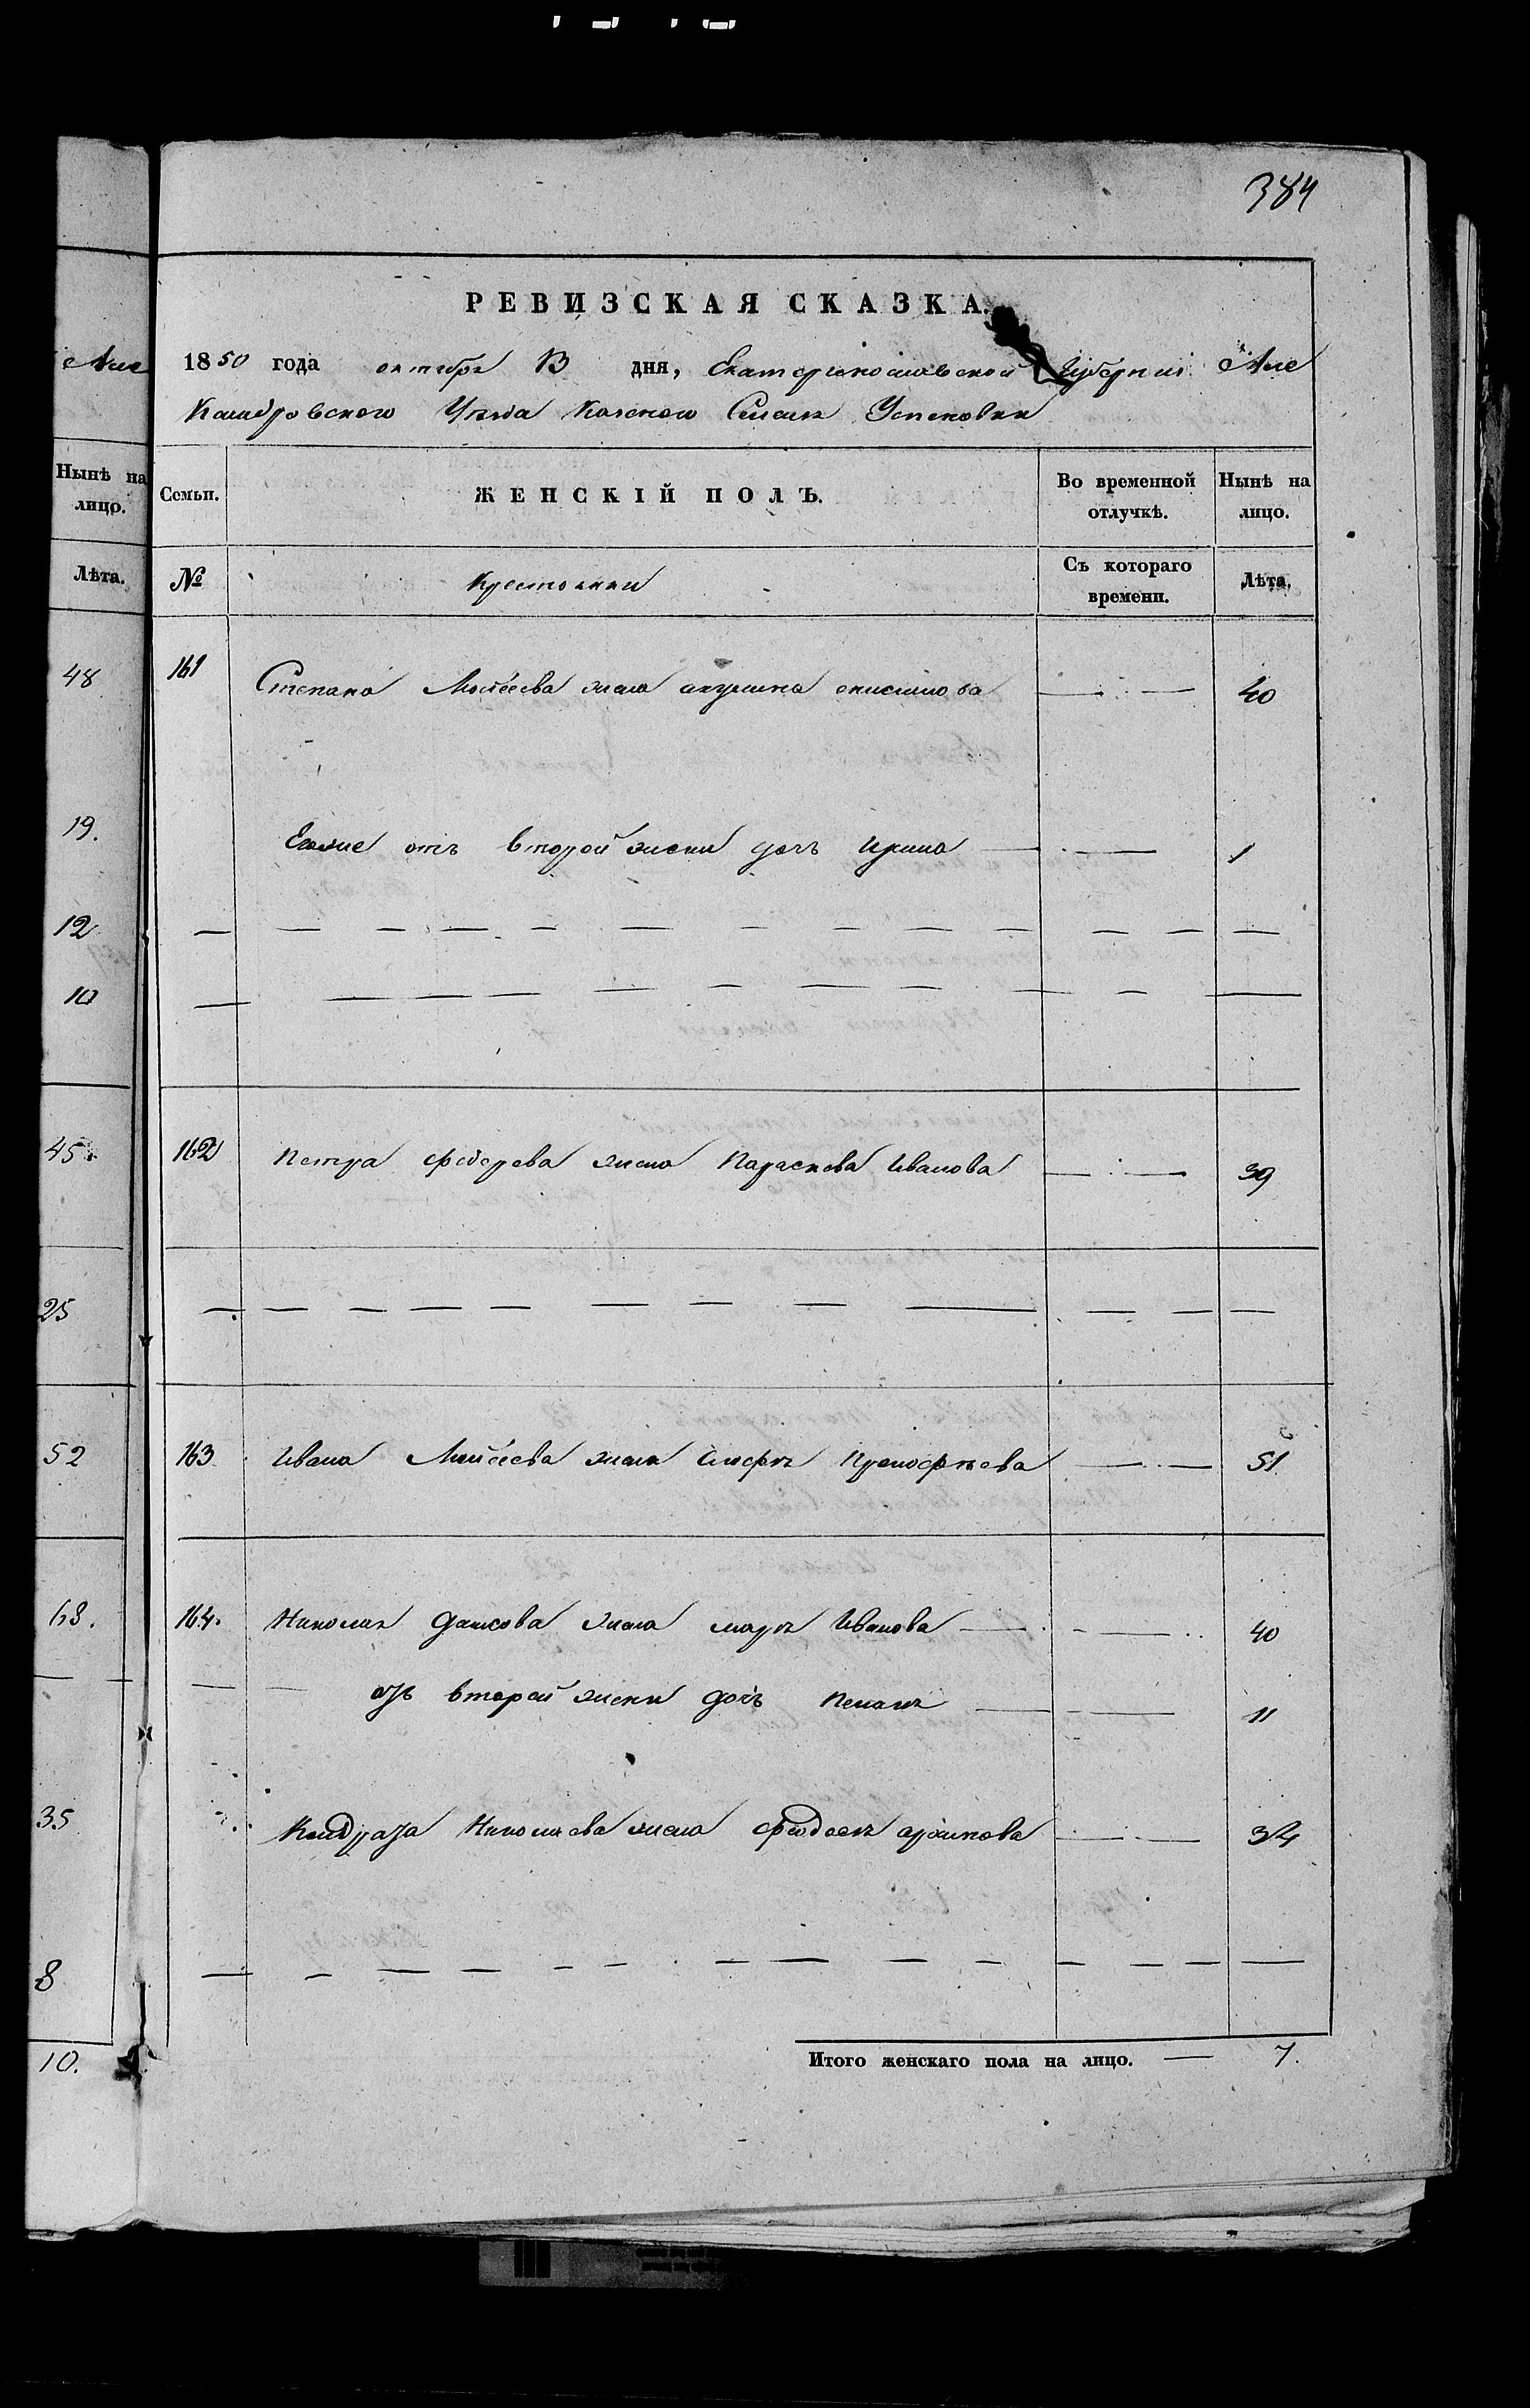 384
РЕВИЗСКАЯ СКАЗКА.
1850 года октебра 13 дня, Екатеринославской Губернии Але
ксандровского Уезда Успеновки
Нынѣ на лицо.
Лѣта.
48
19.
12
10
45
25
52
68.
35
8
10.
Семьи. ЖЕНСКІЙ ПОЛЪ. Во временной отлучкѣ. Нынѣ на лицо.
№ Крестьянки Съ котораго времени. Лѣта.
161 Степана Мойсеева жена акулина 40
Егоже отъ второй жены дочь Ирина 1
162 Петра Федорова жена Параскева Иванова 39
163 Ивана Мойсеева жена 51
164. Николая жена марѣ Иванова 40
отъ второй жены дочь 11
Кондрата Николаева жена архипова 34
Итого женскаго пола на лицо. — 7.